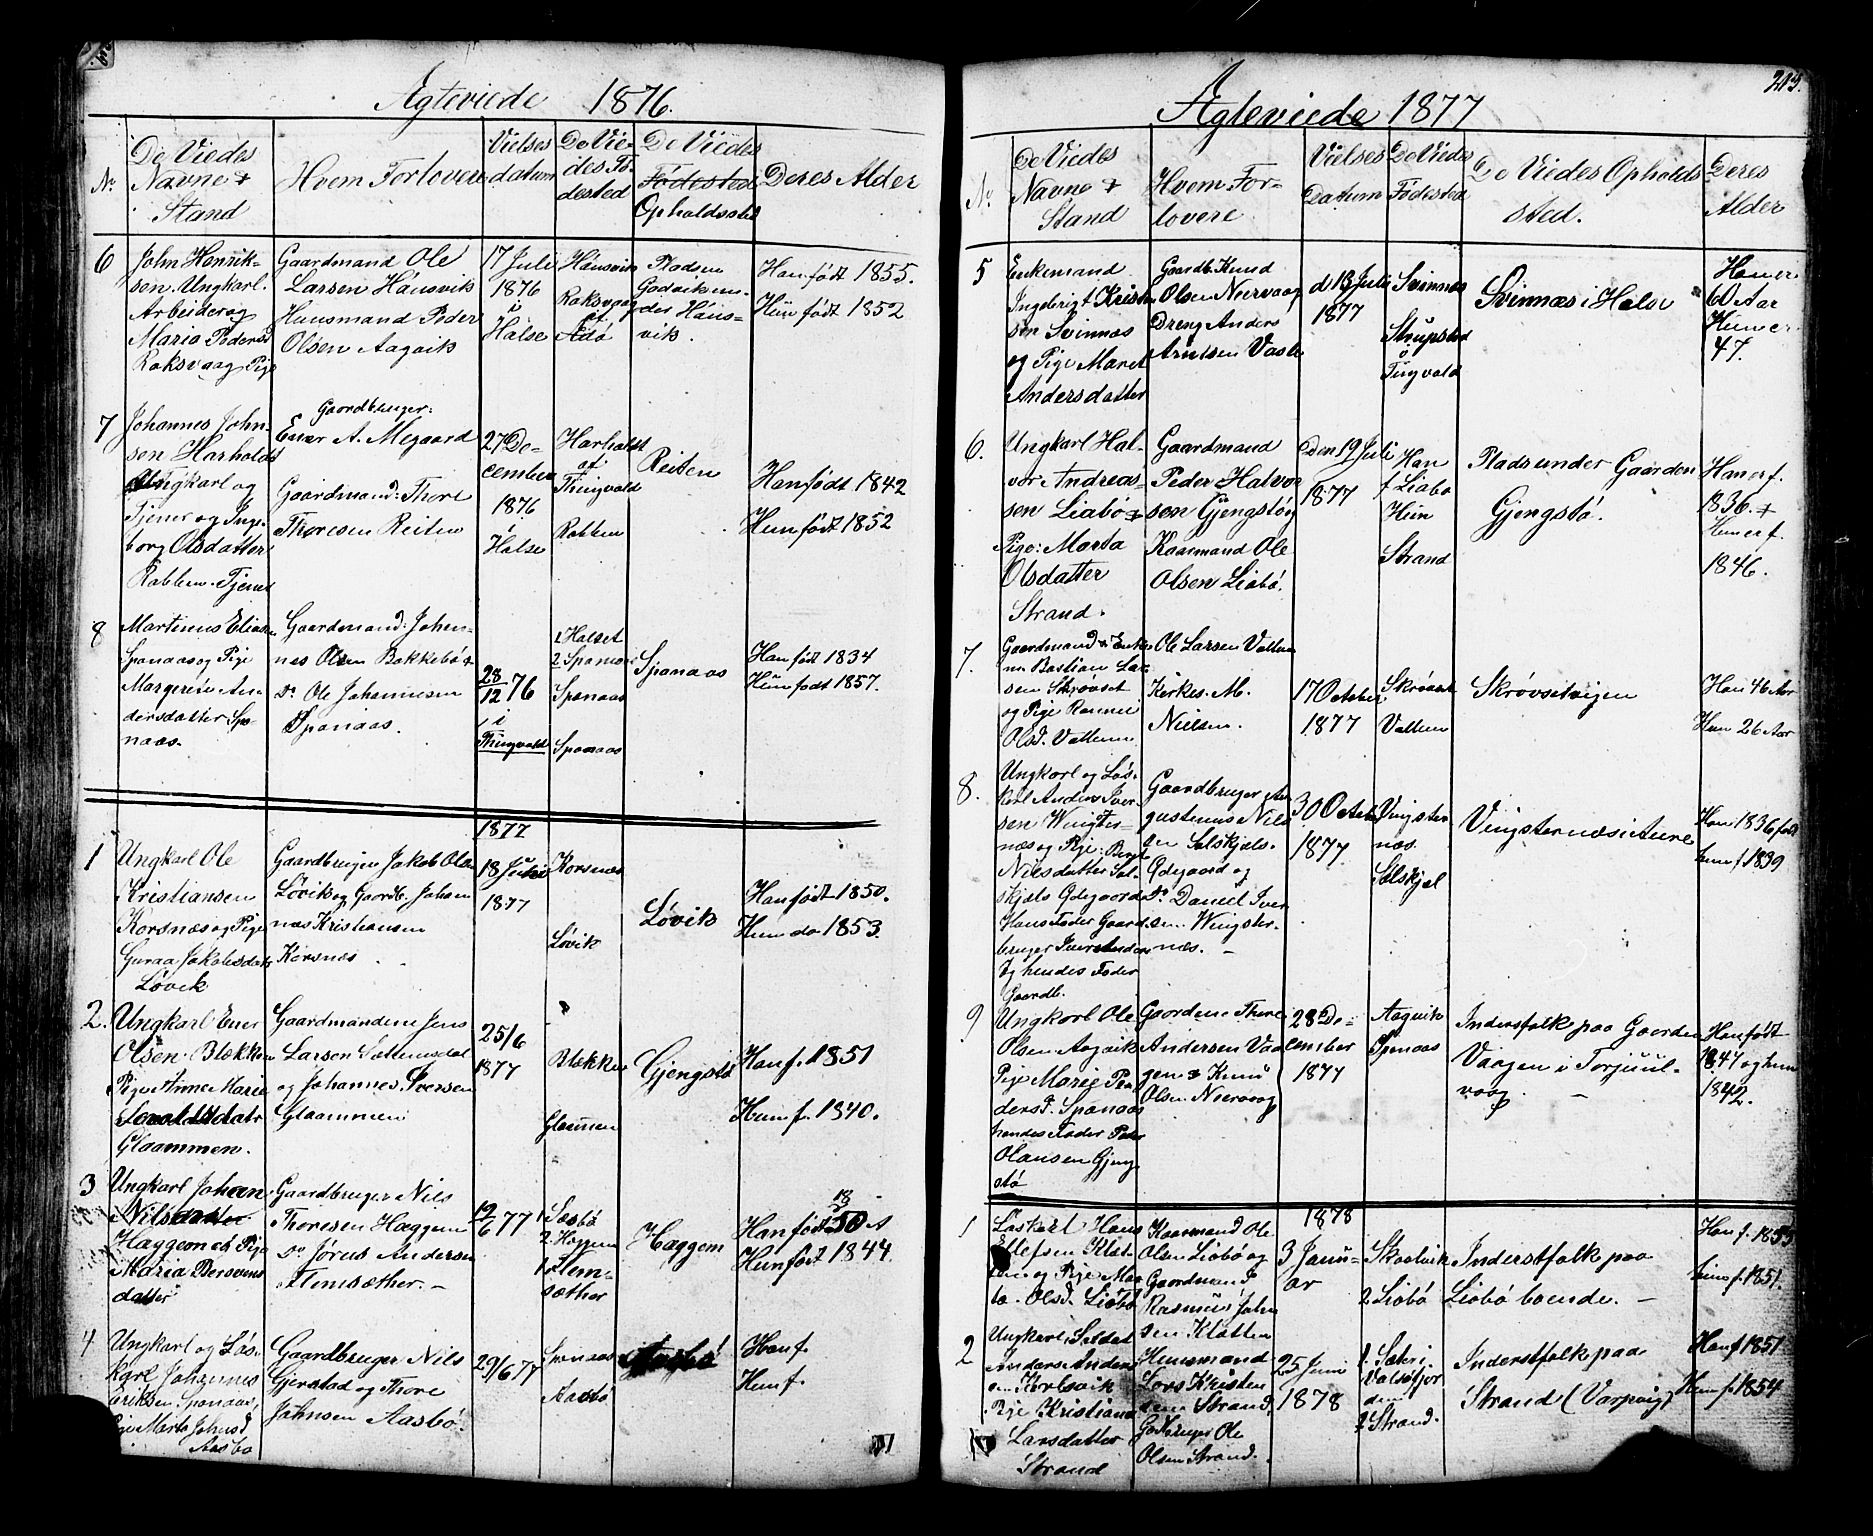 Ægteviede 1876.
No
De Viedes
Navne &
Stand
Hvem Forlovere
Vielses
datum
De Vie-
des Fö-
dested
De Viedes
Födested
Opholdssted
Deres Alder
6
John Henrik-
sen Ungkarl
Arbeider og
Maria Peders
Raksvaag Pige
Gaardmand Ole
Larsen Hansvik
Huusmand Peder
Olsen Aagvik
17 Juli
1876
i
Halse
Hansvik
Raksvaag
Pladsen
Godviken un-
der Hans-
vik.
Han födt 1855.
Hun födt 1852
7
Johannes John-
sen Harholdt
Ungkarl og
Tjener og Inge-
borg Olsdatter
Rabben. Tjener
Gaardbruger:
Ener A. Megaard
Gaardmand: Thore
Thoresen Reiten
27 De-
cember
1876
Halse
Harholdt
af
Thingvold
Rabben
Reiten
Han födt 1842
Hun födt 1852
8
Martinus Elias
Spanaas og Pige
Margrete An-
dersdatter Spa-
naas.
Gaardmand: Johan-
nes Olsen Bakkebö &
Do Ole Johannesen
Spanaas.
28/12 76
i
Thingvold
1 Halset
2 Spanaas
Spanaas
Spanaas
Spanaas
Han födt 1834
Hun födt 1857.
1877
1
Ungkarl Ole
Kristiansen
Korsnæs og Pige
Guraa Jakobsdatr
Lövik
Gaardbruger Jakob Olsen
Lövik og Gaardb. Johan
nes Kristiansen
Korsnæs
18 Juni
1877
Korsnæs
Lövik
Lövik
Han födt 1850.
Hun do 1853.
2.
Ungkarl Ener
Olsen Blekken
Pige Anne Marie
Glaammen.
Gaardmændene Jens
Larsen Sættemsdal
og Johannes Iversen
Glaammen
25/6
1877
Blekken
Glaamen
Gjengstö
Han f. 1851
Hun f. 1840.
3
Ungkarl Johan
Nilsdatter
Hæggem og Pige
Maria Beresvens
datter
Gaardbruger Nils
Thoresen Hæggem
Do Jörus Andersen
Flemsæther. –
12/6 77
Aasbö
2 Heggem
Flem-
sæther
Hæggem
Han födt 1850
Hun födt 1844.
4
Ungkarl og Lös-
karl Johannes
Eriksen Spanaas,
Pige Marta Johnsd
Aasbö
Gaardbruger Nils
Gjerstad og Thore
Johnsen Aasbö.
29/6 77
Spanaas
Aasbö
Aasbö
Han f.
Hun f.
Ægteviede 1877
213.
No
De Viedes
Navne &
Stand
Hvem For-
lovere
Vielses
Datum
De Viedes
Födested
De Viedes Opholds
sted.
Deres
Alder
5
Enkemand
Ingebrigt Kristen
sen Svinnæs
og Pige Maret
Andersdatter
Gaardb. Knud
Olsen Neervaag
Dreng Anders
Arntsen Vaslie
d 13 Juli
1877
Svinnæs
Strupstad
i
Tingvold
Svinnæs i Halse
Han er
60 Aar
Hun er
47.
6.
Ungkarl Hal-
vor Andreas-
sen Liabö &
Pige: Marta
Olsdatter
Strand.
Gaardmand
Peder Halvor
sen Gjengstö og
Kaarmand Ole
Olsen Liabö.
Den 19 Juli
1877
Han
f Liabö
Hun
Strand
Plads under Gaarden
Gjengstö.
Han er f.
1836. &
Hun er f.
1846.
7.
Gaardmand & Enke
ma Bastian Lar
sen Skrövset
og Pige Rannei
Olsd. Valtum
Ole Larsen Valtum
Kirkes. M.
Nielsen.
17 October
1877
Skrövset
Valtum
Skrövsetvigen
Han 46 Aar
Hun 26 Aar
8.
Ungkarl og Lös-
karl Anders Iver-
sen Wingster-
næs og Pige: Berit
Nilsdatter Sel-
skjels Ödegaard
Hans Fader Gaard-
bruger Iver Anders
Og hendes Fader
Gaardb.
Gaardbruger Au
gustinus Nils
sen Selskjels-
Ödegaard og
Do Daniel Iver
sen Wingster-
næs. –
30 Octob
1877
Vingster
næs.
Selskjel
Vingsternæs i Aure
Han 1836 födt
hun f. 1839
9
Ungkarl Ole
Olsen Aagvik
Pige Marie Pe-
dersd. Spanaas
hendes Fader Peder
Olausen Gjeng
stö
Gaardene Thore
Andersen Vaa
gen & Knu
Olsen Neervaag
28 De-
cember
1877
Aagvik
Spanaas
Inderstfolk paa Gaarden
Vaagen i Torjuul-
vaag. –
Han födt
1847 og hun
1842.
1878
1
Löskarl Hans
Ellefsen Klat-
ten og Pige Mar
ta. Olsd. Liabö
Kaarmand Ole
Olsen Liabö og
Gaardmand
Rasmus John
sen Klatten
3 Janu-
ar
Skaalvik
2 Liabö
Inderstfolk paa
Liabö boende. –
Han f. 1853
hun f. 1851.
2
Ungkarl, Soldat
Anders Anders
en Korlsvik
Pige Kristiana
Larsdatter
Strand
Huusmand
Lars Kristen
sen Strand,
Gaardbruger Ole
Olsen Strand.
25 Juni
1878
1. Sæter i
Valsöfjor
den
2 Strand.
Inderstfolk paa
Strand (Varpvig)
Han f 1851
Hun f. 1854